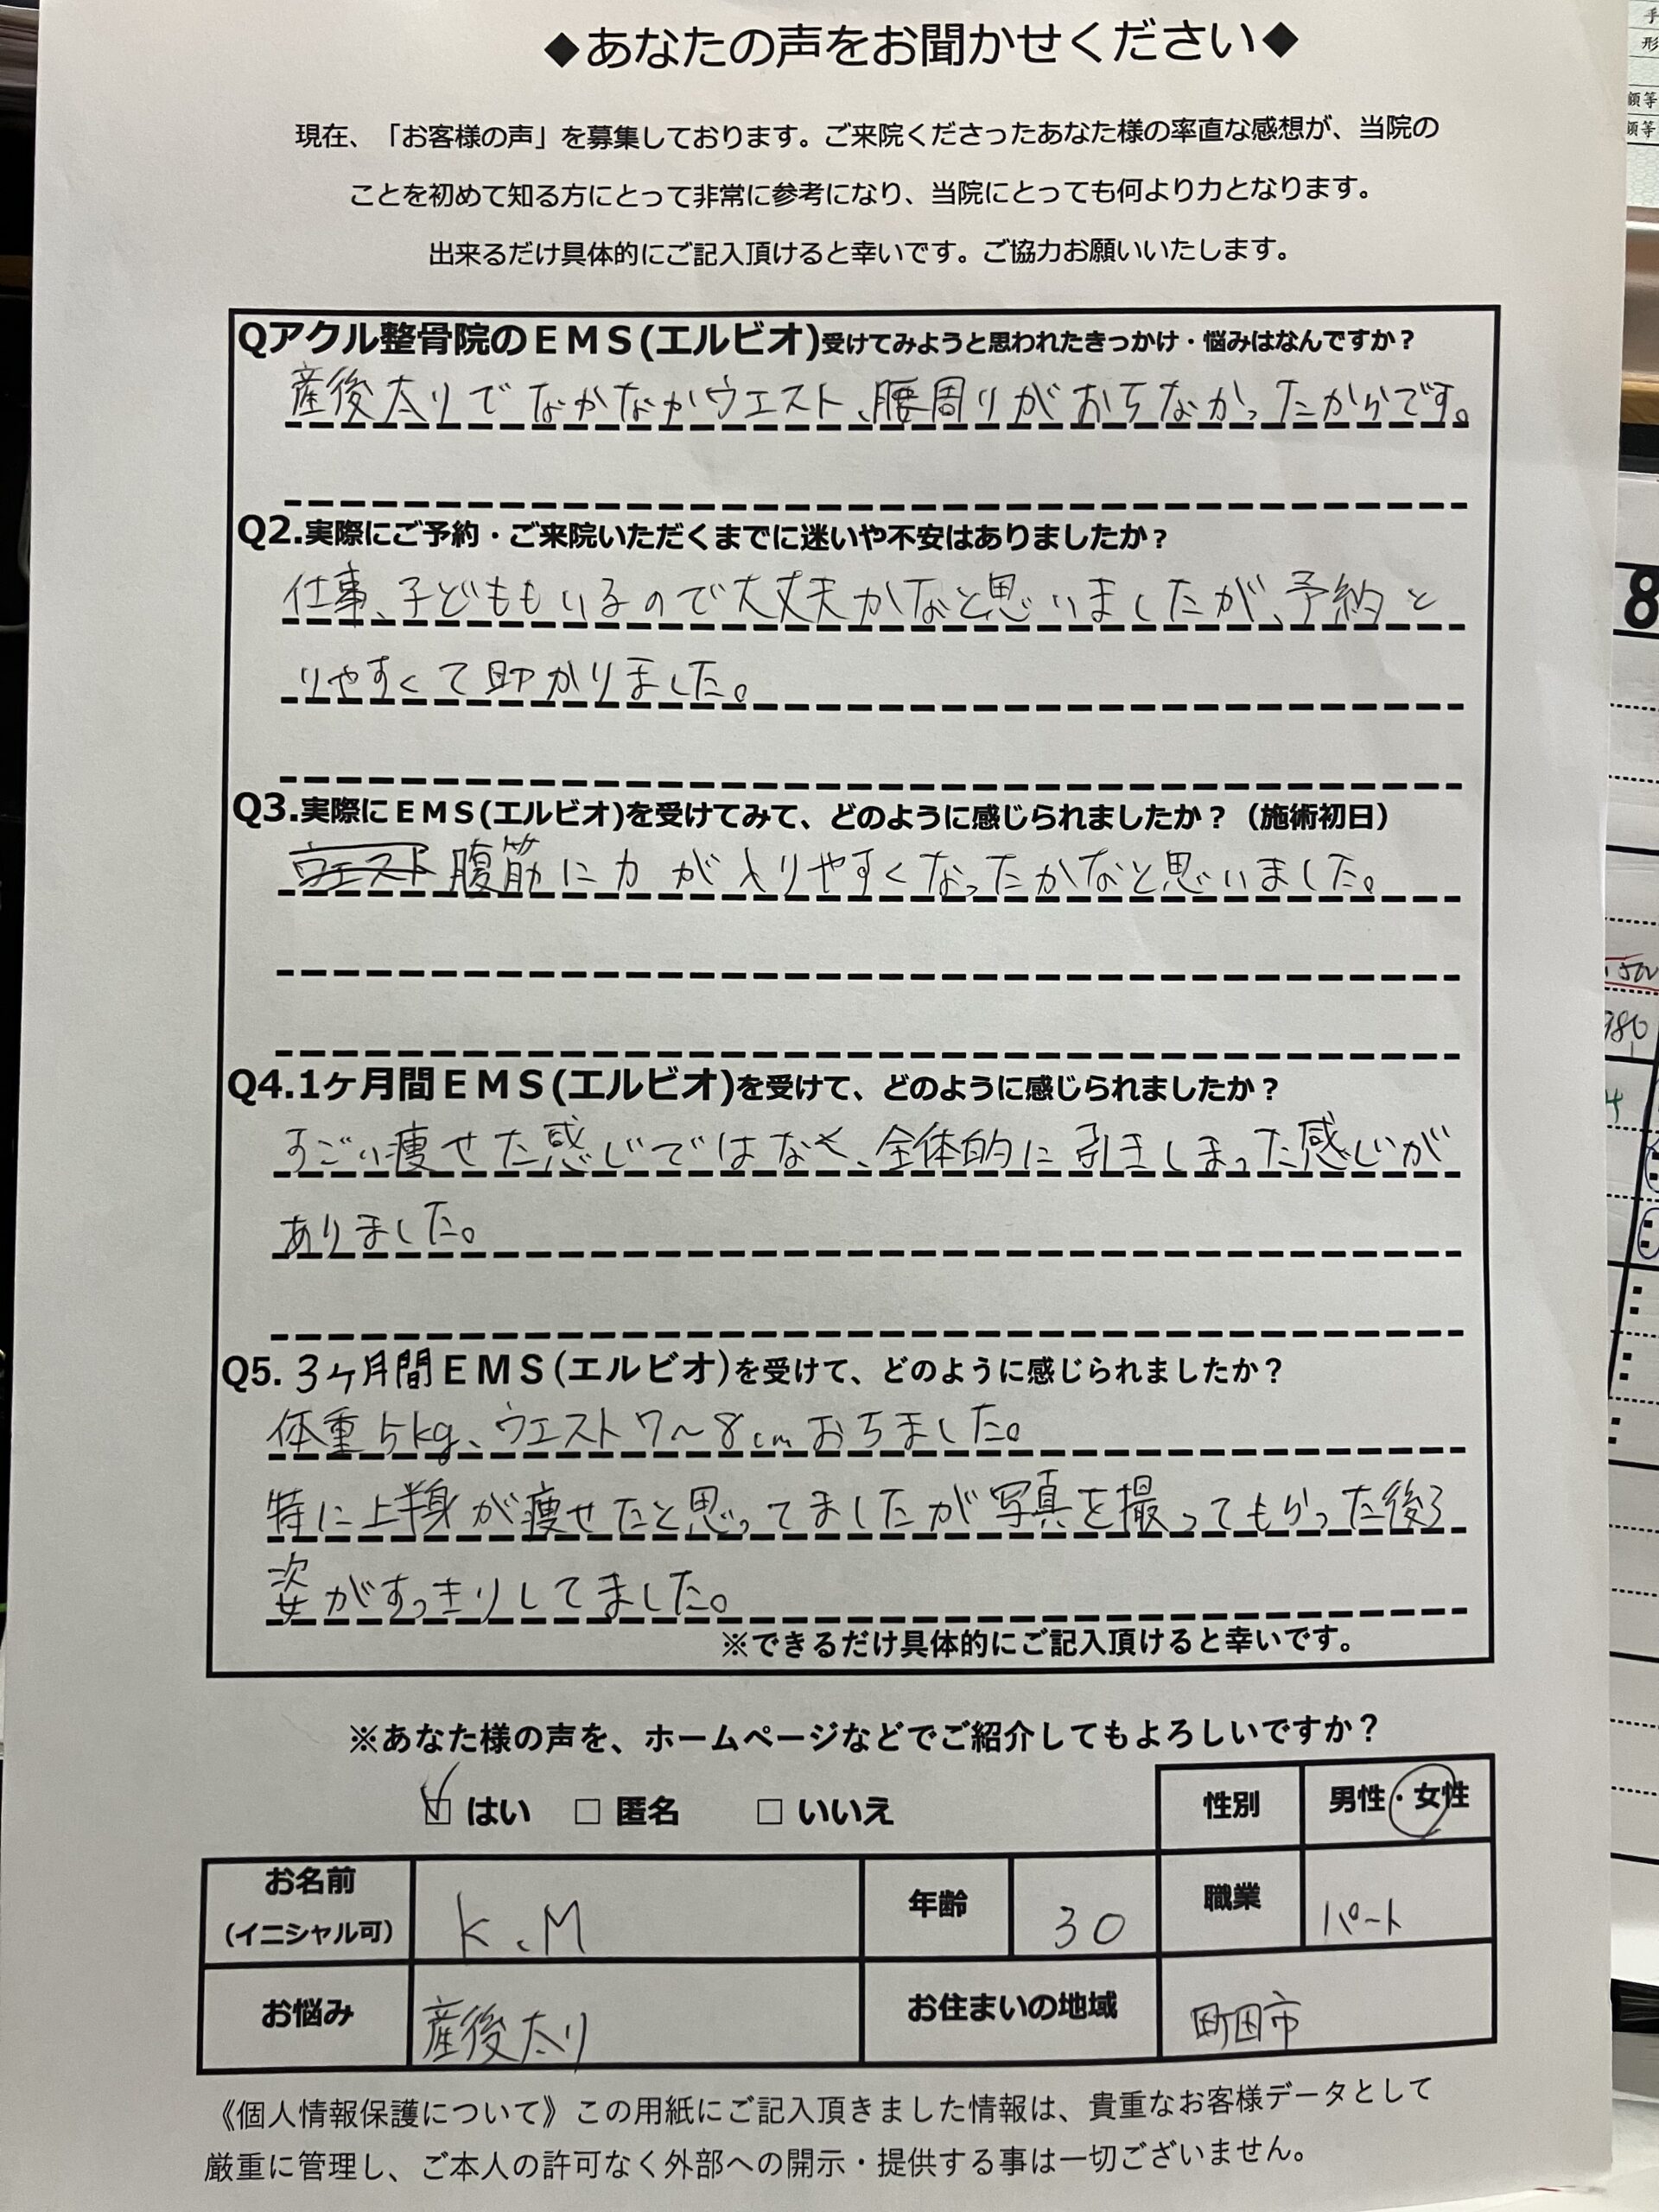 ◆あなたの声をお聞かせください◆
現在、「お客様の声」を募集しております。ご来院くださったあなた様の率直な感想が、当院の
ことを初めて知る方にとって非常に参考になり、当院にとっても何より力となります。
出来るだけ具体的にご記入頂けると幸いです。ご協力お願いいたします。
Qアクル整骨院のEMS(エルビオ)受けてみようと思われたきっかけ・悩みはなんですか?
産後太りでなかなかウエスト、腰周りがおちなかったからです。
Q2.実際にご予約・ご来院いただくまでに迷いや不安はありましたか?
仕事、子どももいるので大丈夫かなと思いましたが、予約と
りやすくて助かりました。
Q3.実際にEMS(エルビオ)を受けてみて、どのように感じられましたか?(施術初日)
ウエスト腹筋に力が入りやすくなったかなと思いました。
Q4.1ヶ月間EMS(エルビオ)を受けて、どのように感じられましたか?
すごい痩せた感じではなく、全体的に引きしまった感じが
ありました。
Q5.3ヶ月間EMS(エルビオ)を受けて、どのように感じられましたか?
体重5kg、ウエスト7〜8cmおちました。
特に上半身が痩せたと思ってましたが写真を撮ってもらった後ろ
姿がすっきりしてました。
※できるだけ具体的にご記入頂けると幸いです。
※あなた様の声を、ホームページなどでご紹介してもよろしいですか?
☑はい □匿名 □いいえ
性別 男性・女性
お名前
(イニシャル可) K.M 年齢 30 職業 パート
お悩み 産後太り お住まいの地域 町田市
《個人情報保護について》この用紙にご記入頂きました情報は、貴重なお客様データとして
厳重に管理し、ご本人の許可なく外部への開示・提供する事は一切ございません。
手
形
額等
額等
8
980